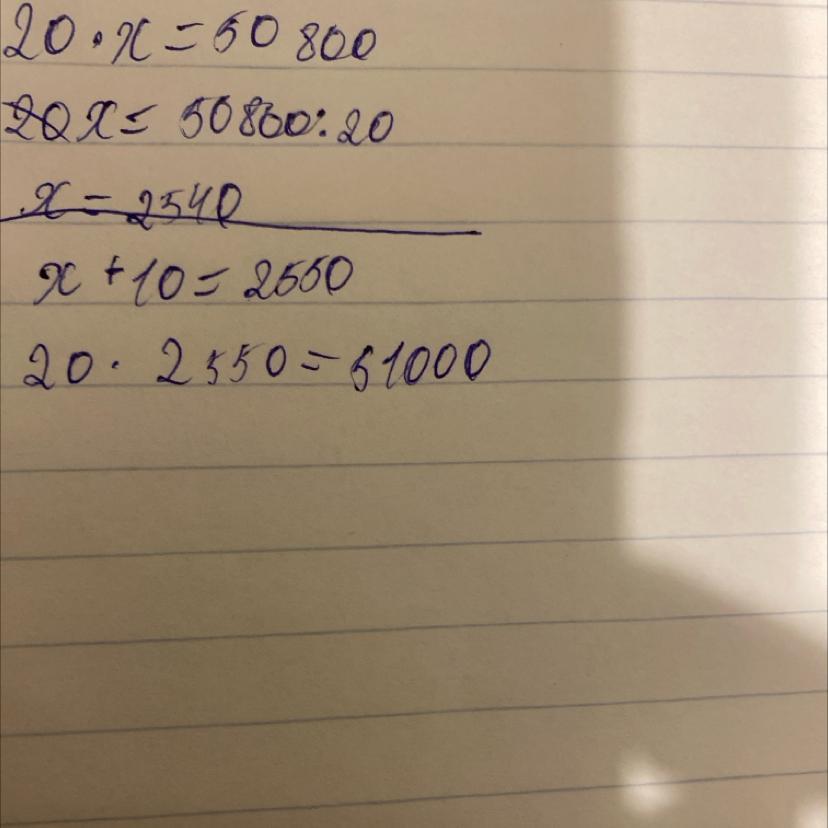 20 · x = 50 800
20 x = 50800 : 20
x = 2540
x + 10 = 2550
20 · 2550 = 51000